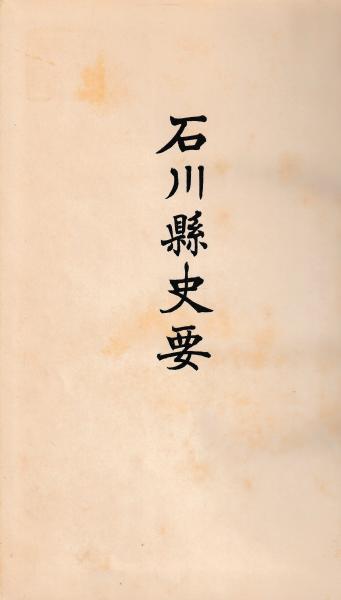 石川縣史要